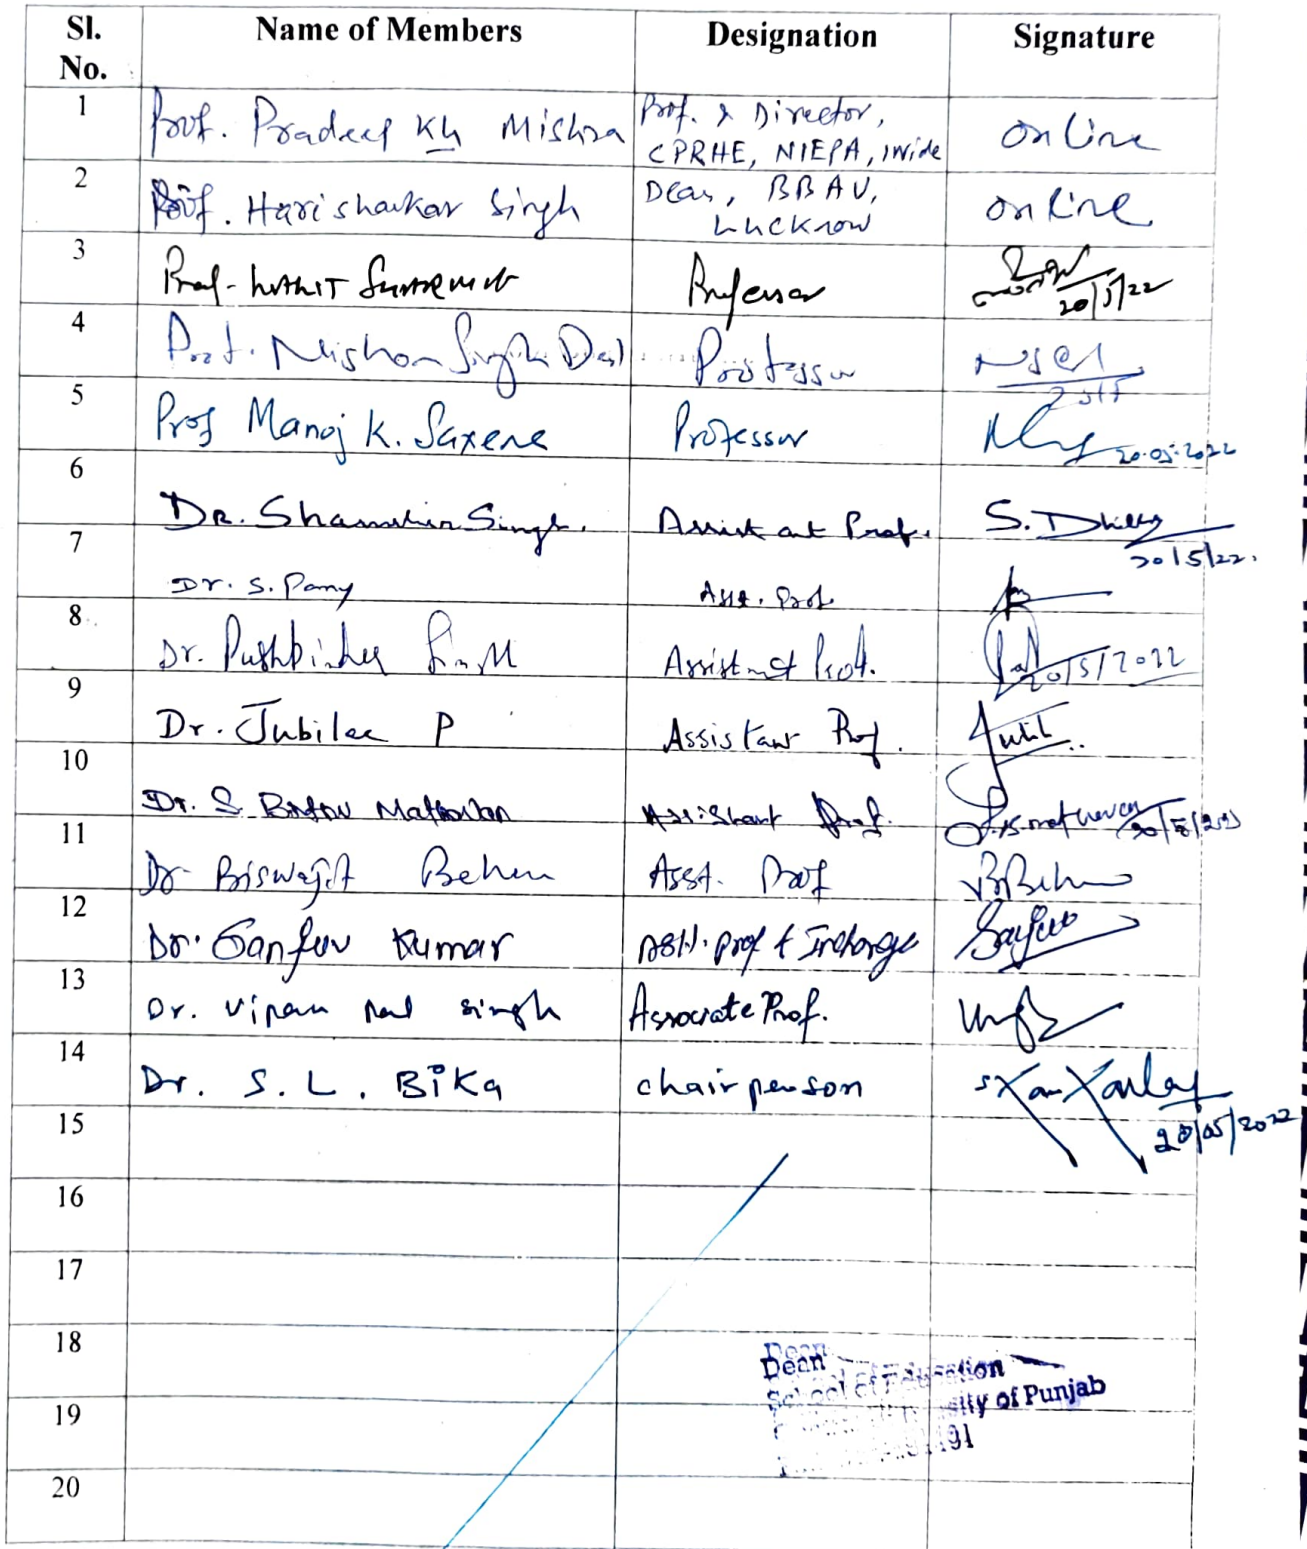 Sl. No. Name of Members Designation Signature
1 Prof. Pradeep Kr Mishra Prof. & Director, CPRHE, NIEPA, online
2 Prof. Harishankar Singh Dean, BBAU, Lucknow online
3 Prof. Professor 20/5/22
4 Prof. Singh Professor
5 Prof Manoj K. Saxena Professor 20.05.2022
6 Dr. Shamshir Singh. Assistant Prof. S. 20/5/22.
7 Dr. S. Pany Asst. Prof.
8 Dr. Pushpinder Singh Assistant Prof. 20/5/2022
9 Dr. Jubilee P Assistant Prof.
10 Dr. S. Assistant Prof.
11 Dr Biswajit Behera Asst. Prof
12 Dr. Sanjeev Kumar Asst. Prof & Incharge
13 Dr. Vipan Pal Singh Associate Prof.
14 Dr. S. L. Bika chairperson 20/05/2022
15
16
17
18
Dean
School of Education
19 University of Punjab
20